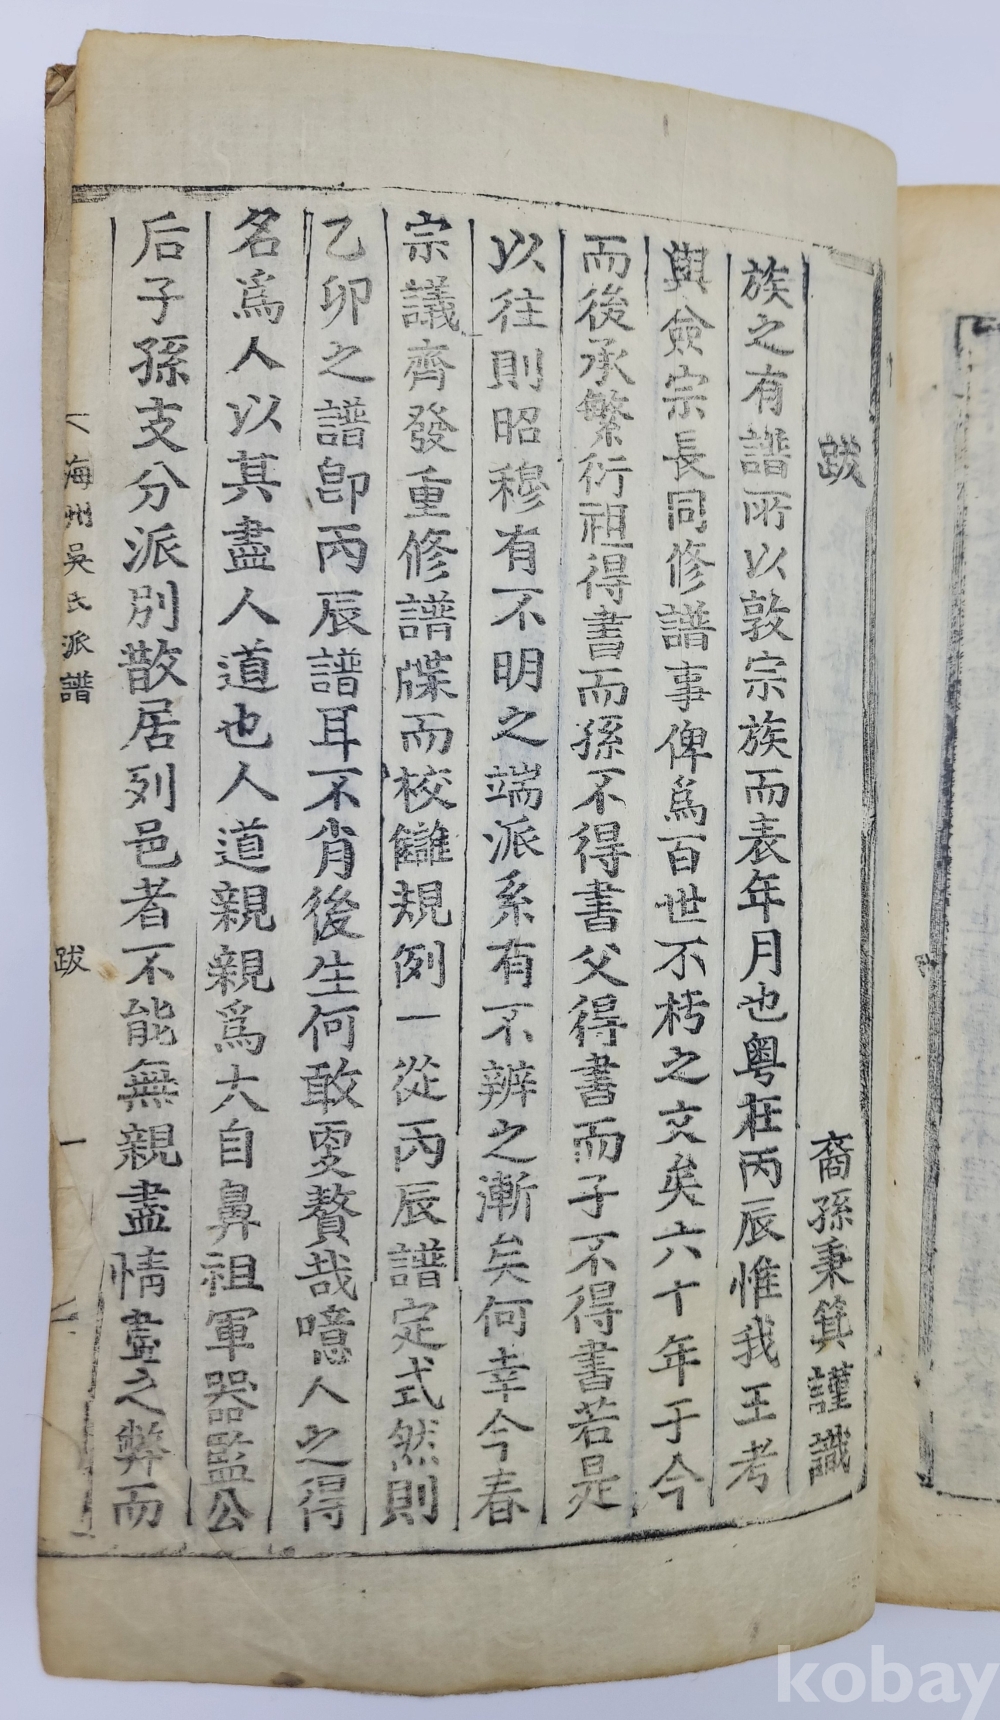 跋
裔孫秉箕謹識
族之有譜所以敦宗族而表年月也粤在丙辰惟我王考
與僉宗長同修譜事俾爲百世不朽之文矣六十年于今
而後承繁衍祖得書而孫不得書父得書而子不得書若是
以往則昭穆有不明之端派系有不辨之漸矣何幸今春
宗議齊發重修譜牒而校讎規例一從丙辰譜定式然則
乙卯之譜卽丙辰譜耳不肖後生何敢更贅哉噫人之得
名爲人以其盡人道也人道親親爲大自鼻祖軍器監公
后子孫支分派別散居列邑者不能無親盡情盡之弊而
海州吳氏派譜 跋 一
kobay